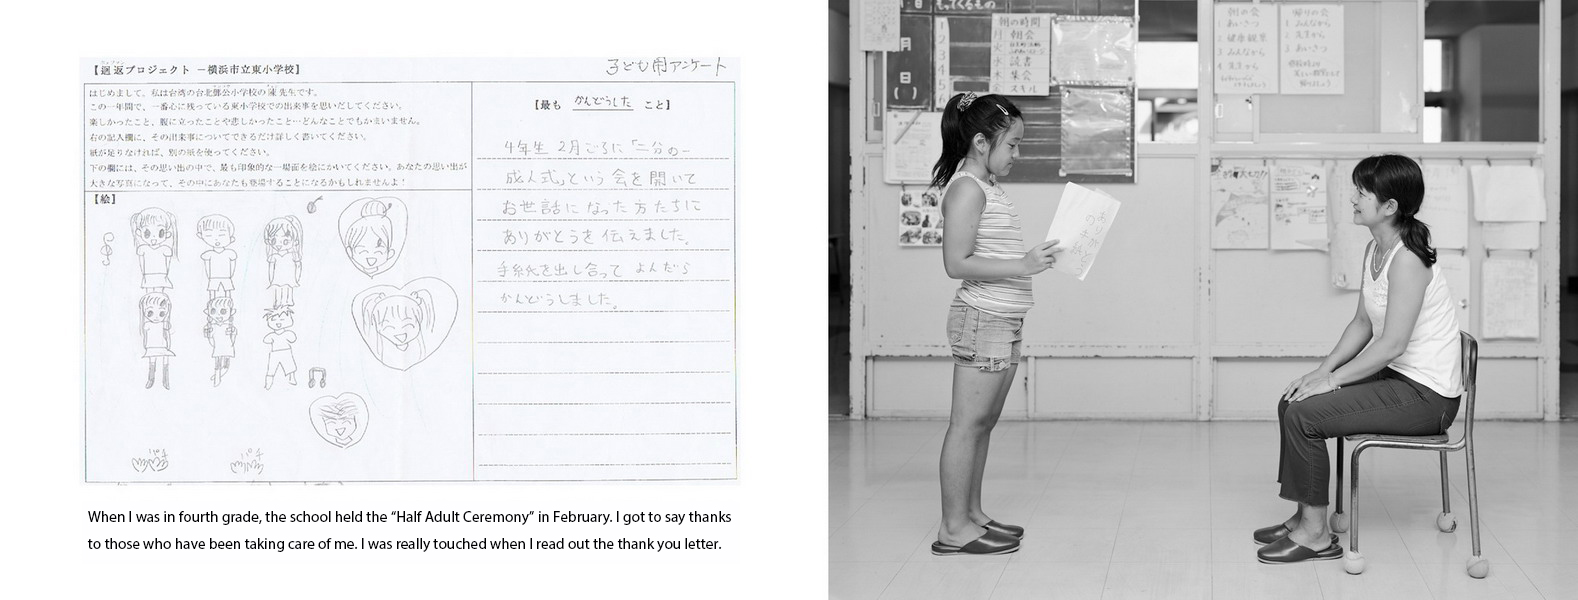 【迴返プロジェクト －横浜市立東小学校】
子ども用アンケート
はじめまして。私は台湾の台北鄧公小学校の陳先生です。
この一年間で、一番心に残っている東小学校での出来事を思いだしてください。
楽しかったこと、腹に立ったことや悲しかったこと…どんなことでもかまいません。
右の記入欄に、その出来事についてできるだけ詳しく書いてください。
紙が足りなければ、別の紙を使ってください。
下の欄には、その思い出の中で、最も印象的な一場面を絵にかいてください。あなたの思い出が
大きな写真になって、その中にあなたも登場することになるかもしれませんよ！
【絵】
パチ
パチ
【最も かんどうした こと】
4年生 2月ごろに「二分の一
成人式」という会を開いて
お世話になった方たちに
ありがとうを伝えました。
手紙を出し合って よんだら
かんどうしました。
When I was in fourth grade, the school held the “Half Adult Ceremony” in February. I got to say thanks
to those who have been taking care of me. I was really touched when I read out the thank you letter.
もってくるもの
1
2
3
4
5
朝の時間
月 朝会
火
水 読書
木 集会
金 スキル
朝の会
1. あいさつ
2. 健康観察
3. みんなから
4. 先生から
帰りの会
1. みんなから
2. 先生から
3. あいさつ
ありがとう
の手紙